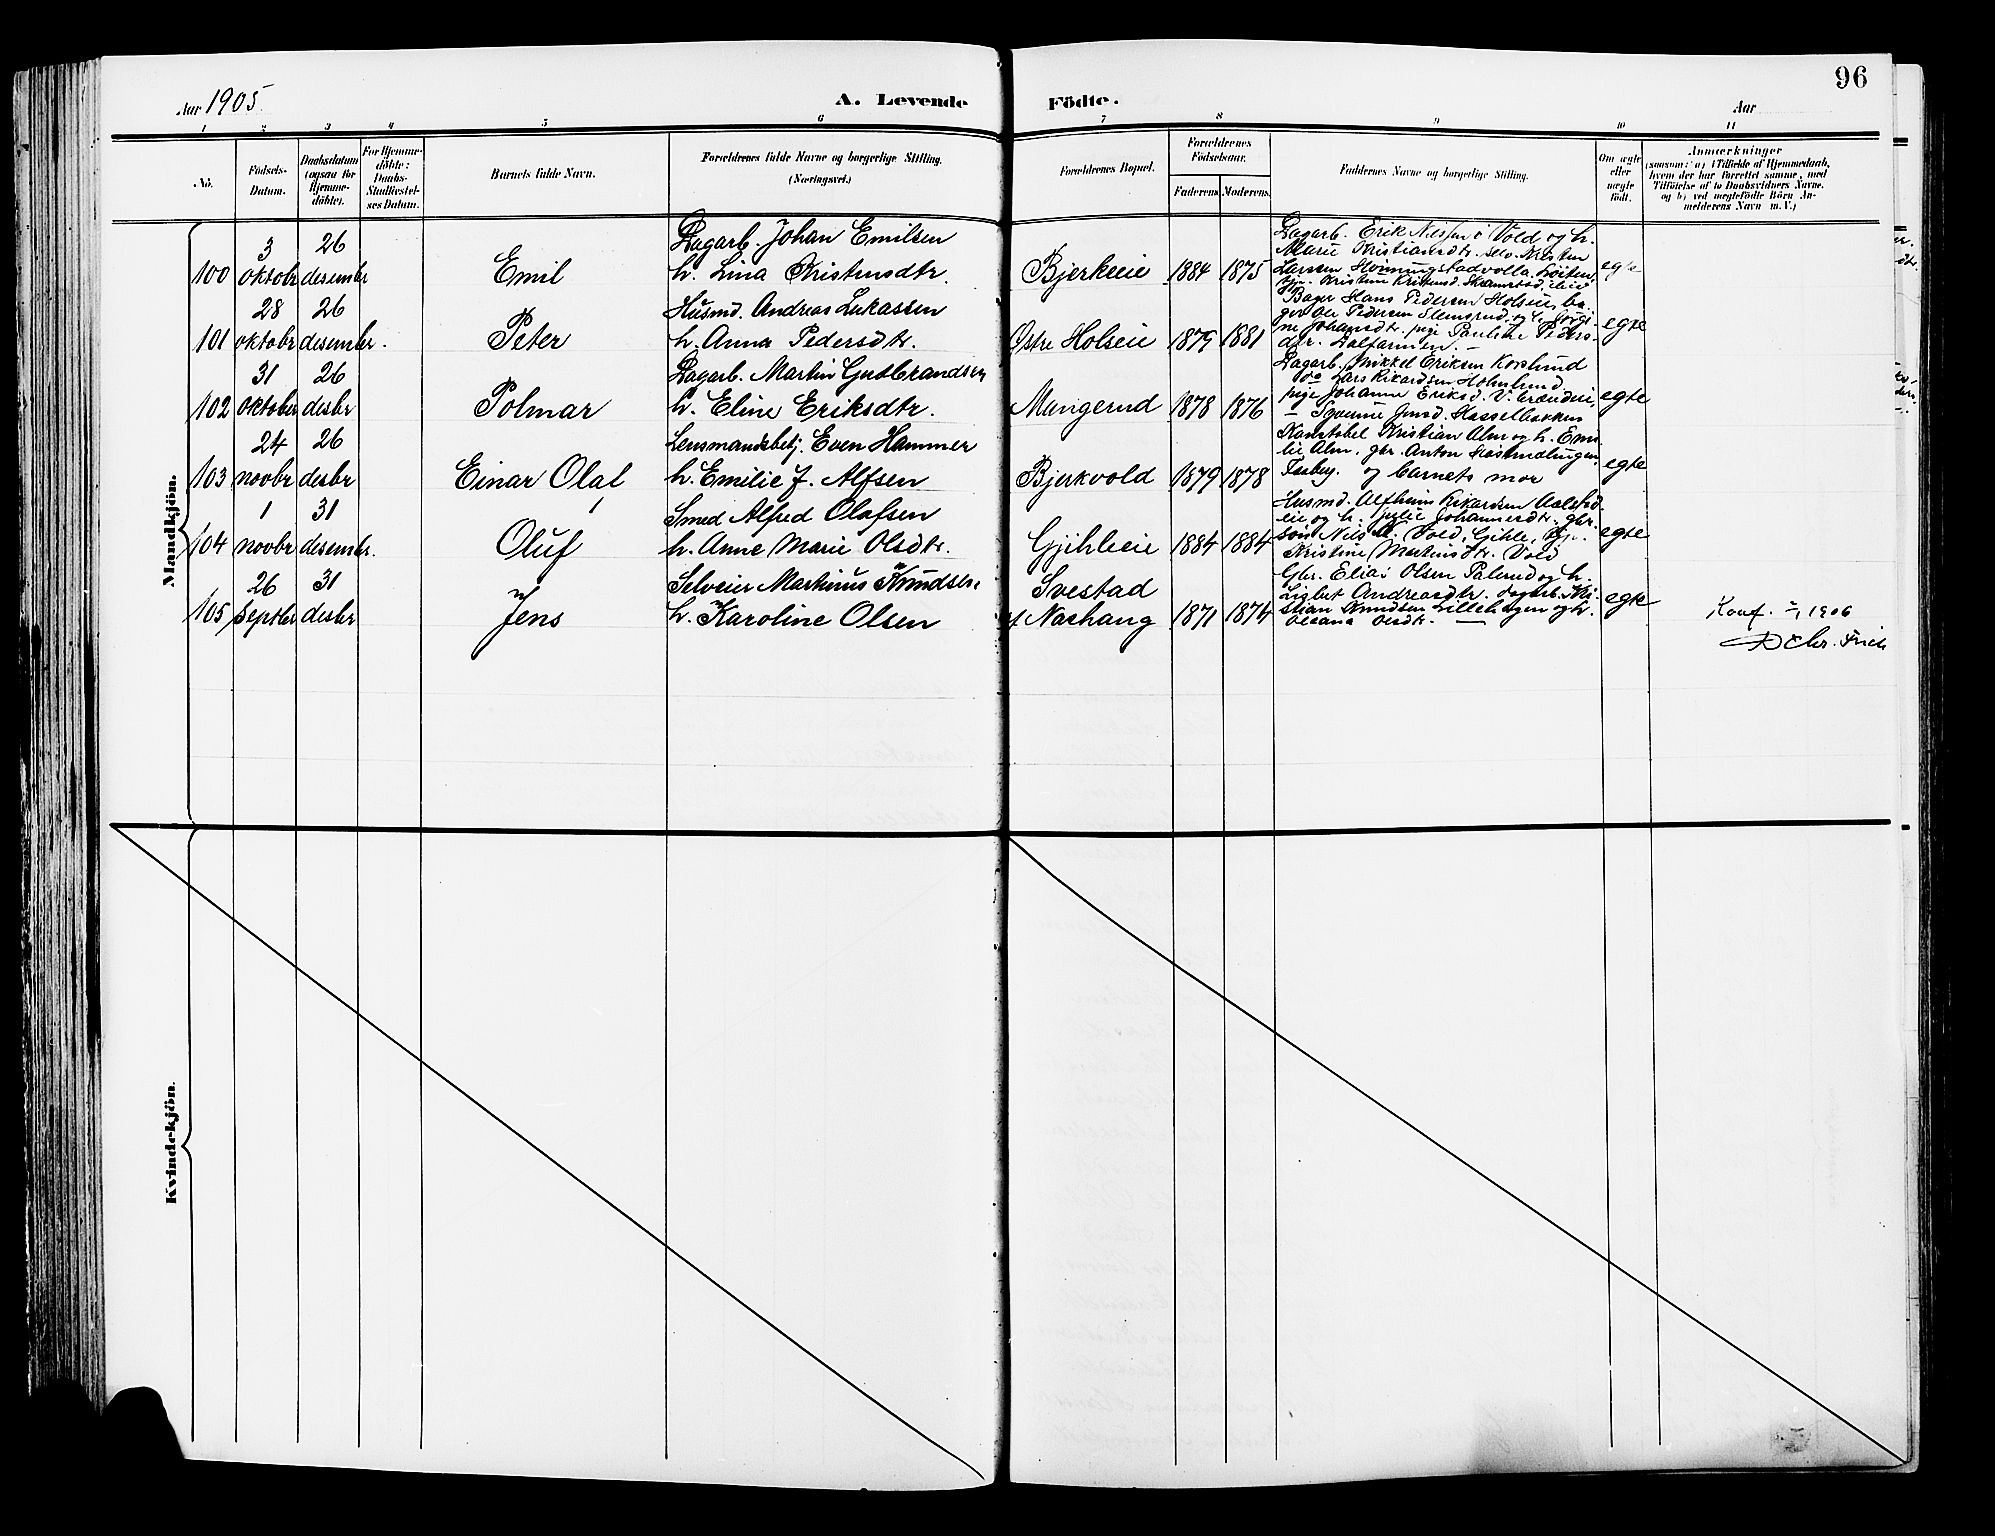 96
Aar 1905
A. Levende Födte.
Aar
1 2 3 4 5 6 7 8 9 10 11
No.
Födsels-Datum.
Daabsdatum (ogsaa for Hjemme-döbte).
For Hjemme-döbte: Daabs-Stadfæstel-ses Datum.
Barnets fulde Navn.
Forældrenes fulde Navne og borgerlige Stilling. (Næringsvei.)
Forældrenes Bopæl.
Forældrenes Födselsaar.
Faderens. Moderens.
Faddernes Navne og borgerlige Stilling.
Om ægte eller uægte födt.
Anmærkninger
(saasom: a) i Tilfælde af Hjemmedaab, hvem der har forrettet samme, med Tilföielse af to Daabsvidners Navne, og b) ved uægtefödte Börn An-melderens Navn m. V.)
Mandkjön.
100 3 oktobr 26 desember Emil
Dagarb. Johan Emilsen
h. Lina Kristensdtr.
Bjerkeeie 1884 1875
Dagarb. Erik Nilsen i Vold og h.
Marie Kristiansdtr. selv. Nilsen
Larsen Hörningstadvolla. Löiten,
pje. Kristine Kristensd. Skramstad, eie
egte
101 28 oktobr 26 desember. Peter
Husmd. Andreas Lukassen
h. Anna Pedersdtr.
Östre Holseie 1879 1881
Bager Hans Pedersen Holseie, ba-
ger Ole Pedersen Slemsrud og h. Jörgi-
ne Johansdtr. pige Pauline Peders-
dtr. Dalfarmen. —
egte
102 31 oktober 26 desbr Polmar
Dagarb. Martin Gudbrandsen
h. Eline Eriksdtr.
Mangerud 1878 1876
Dagarb. Mikkel Eriksen Korslund
do Lars Rikardsen Holmlund
pige Johanne Eriksd. V.
— Jensd. Hasselbakken
egte
103 24 novbr 26 desbr Einar Olaf
Lensmandsbetj. Even Hammer
h. Emilie J. Alfsen
Bjerkvold 1879 1878
Konstabel Kristian Alm og h. Emi-
lie Alm, gbr. Anton
og barnets mor
egte
104 1 novbr 31 desember. Oluf
Smed Alfred Olafsen
h. Anne Marie Olsdtr.
Gjihleeie 1884 1884
Husmd. Rikardsen Aalstad-
eie og h. Julie Johannesdtr. gbr.
sön Nils M. Vold, Gihle,
Kristine Martinsdtr. Vold
egte
105 26 Septbr 31 desbr Jens
Selveier Martinus Knudsen
h. Karoline Olsen
Svestad
Nashaug 1871 1874
Gbr. Elias Olsen Palerud og h.
Lisbet Andreasdtr. dagarb. Kri-
stian Knudsen Lillehagen og h.
Oleana Olsdtr. —
egte
Konf. 1906
Chr.
Kvindekjön.